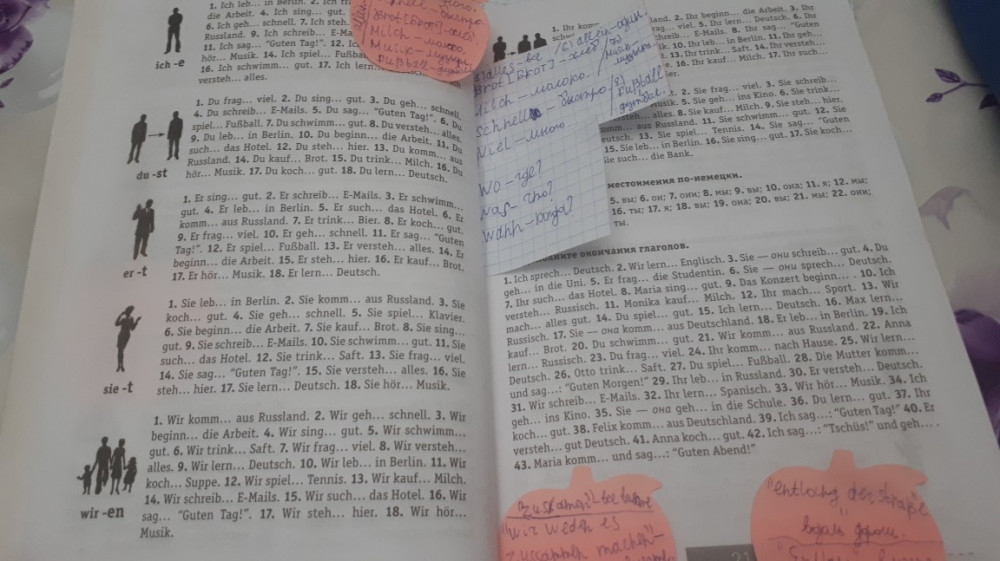 1. Ich leb… in Berlin. 2. Ich
die Arbeit. 4. Ich sing… gut.
6. Ich geh… schnell. 7. Ich steh…
Russland. 9. Ich schreib… E-Ma
11. Ich sag… "Guten Tag!". 12. Ic
Musik. 14. Ich spiel… Fußba
16. Ich schwimm… gut. 17. Ich lern
versteh… alles.
ich -e
1. Du frag… viel. 2. Du sing… gut. 3. Du geh… schnell.
4. Du schreib… E-Mails. 5. Du sag… "Guten Tag!". 6. Du
spiel… Fußball. 7. Du schwimm… gut. 8. Du versteh… alles.
9. Du leb… in Berlin. 10. Du beginn… die Arbeit. 11. Du
such… das Hotel. 12. Du steh… hier. 13. Du komm… aus
Russland. 14. Du kauf… Brot. 15. Du trink… Milch. 16. Du
hör… Musik. 17. Du koch… gut. 18. Du lern… Deutsch.
du -st
1. Er sing… gut. 2. Er schreib… E-Mails. 3. Er schwimm…
gut. 4. Er leb… in Berlin. 5. Er such… das Hotel. 6. Er
komm… aus Russland. 7. Er trink… Bier. 8. Er koch… gut.
9. Er frag… viel. 10. Er geh… schnell. 11. Er sag… "Guten
Tag!". 12. Er spiel… Fußball. 13. Er versteh… alles. 14. Er
beginn… die Arbeit. 15. Er steh… hier. 16. Er kauf… Brot.
17. Er hör… Musik. 18. Er lern… Deutsch.
er -t
1. Sie leb… in Berlin. 2. Sie komm… aus Russland. 3. Sie
koch… gut. 4. Sie geh… schnell. 5. Sie spiel… Klavier.
6. Sie beginn… die Arbeit. 7. Sie kauf… Brot. 8. Sie sing…
gut. 9. Sie schreib… E-Mails. 10. Sie schwimm… gut. 11. Sie
such… das Hotel. 12. Sie trink… Saft. 13. Sie frag… viel.
14. Sie sag… "Guten Tag!". 15. Sie versteh… alles. 16. Sie
steh… hier. 17. Sie lern… Deutsch. 18. Sie hör… Musik.
sie -t
1. Wir komm… aus Russland. 2. Wir geh… schnell. 3. Wir
beginn… die Arbeit. 4. Wir sing… gut. 5. Wir schwimm…
gut. 6. Wir trink… Saft. 7. Wir frag… viel. 8. Wir versteh…
alles. 9. Wir lern… Deutsch. 10. Wir leb… in Berlin. 11. Wir
koch… Suppe. 12. Wir spiel… Tennis. 13. Wir kauf… Milch.
14. Wir schreib… E-Mails. 15. Wir such… das Hotel. 16. Wir
sag… "Guten Tag!". 17. Wir steh… hier. 18. Wir hör…
Musik.
wir -en
Milch - молоко.
alles - все
Milch - молоко.
schnell - быстро
Viel - много
Wo - где?
Was - что?
Wann - когда?
1. Ihr kom
land. 2. Ihr beginn… die Arbeit. 3. Ihr
viel. 5. Du lern… Deutsch. 6. Ihr
Mails. 8. Ihr sag… "Guten
k. 10. Ihr leb… in Berlin. 11. Ihr geh…
Saft. 14. Ihr versteh…
16. Ihr kauf… Milch. 17. Ihr such…
2. Sie frag… viel. 3. Sie schreib…
Musik. 5. Sie geh… ins Kino. 6. Sie trink…
alles. 8. Sie kauf… Milch. 9. Sie steh… hier.
aus Russland. 11. Sie schwimm… gut. 12. Sie
eutsch. 13. Sie spiel… Tennis. 14. Sie sag… "Guten
15. Sie leb… in Berlin. 16. Sie sing… gut. 17. Sie koch…
Sie such… die Bank.
местоимения по-немецки.
5. вы; 6. ты; 7. они; 8. мы; 9. вы; 10. она; 11. я; 12. мы;
16. ты; 17. я; 18. вы; 19. она; 20. вы; 21. мы; 22. они;
ты.
окончания глаголов.
1. Ich sprech… Deutsch. 2. Wir lern… Englisch. 3. Sie — они schreib… gut. 4. Du
geh… in die Uni. 5. Er frag… die Studentin. 6. Sie — они sprech… Deutsch.
7. Ihr such… das Hotel. 8. Maria sing… gut. 9. Das Konzert beginn… . 10. Ich
versteh… Russisch. 11. Monika kauf… Milch. 12. Ihr mach… Sport. 13. Wir
mach… alles gut. 14. Du spiel… gut. 15. Ich lern… Deutsch. 16. Max lern…
Russisch. 17. Sie — она komm… aus Deutschland. 18. Er leb… in Berlin. 19. Ich
kauf… Brot. 20. Du schwimm… gut. 21. Wir komm… aus Russland. 22. Anna
lern… Russisch. 23. Du frag… viel. 24. Ihr komm… nach Hause. 25. Wir lern…
Deutsch. 26. Otto trink… Saft. 27. Du spiel… Fußball. 28. Die Mutter komm…
und sag…: "Guten Morgen!" 29. Ihr leb… in Russland. 30. Er versteh… Deutsch.
31. Wir schreib… E-Mails. 32. Ihr lern… Spanisch. 33. Wir hör… Musik. 34. Ich
geh… ins Kino. 35. Sie — она geh… in die Schule. 36. Du lern… gut. 37. Ihr
koch… gut. 38. Felix komm… aus Deutschland. 39. Ich sag…: "Guten Tag!" 40. Er
versteh… gut Deutsch. 41. Anna koch… gut. 42. Ich sag…: "Tschüs!" und geh… .
43. Maria komm… und sag…: "Guten Abend!"
zusammen machen
21
вдоль дороги.